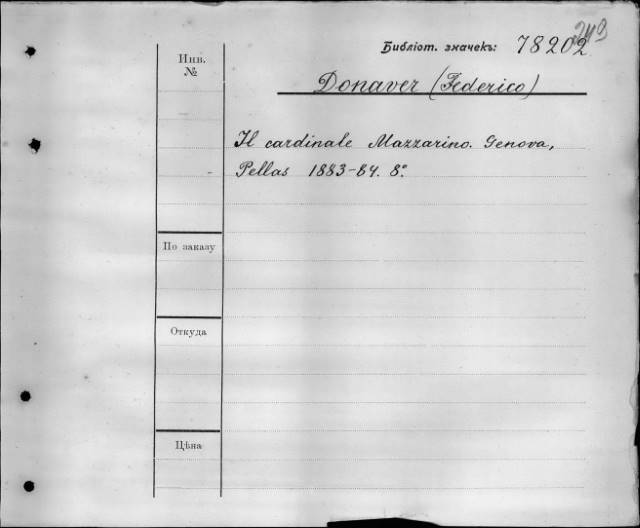 Библіот. значекъ: 78202
Инв.
№
Donaver (Federico)
Il cardinale Mazzarino. Genova,
Pellas 1883-84. 8°.
По заказу
Откуда
Цѣна